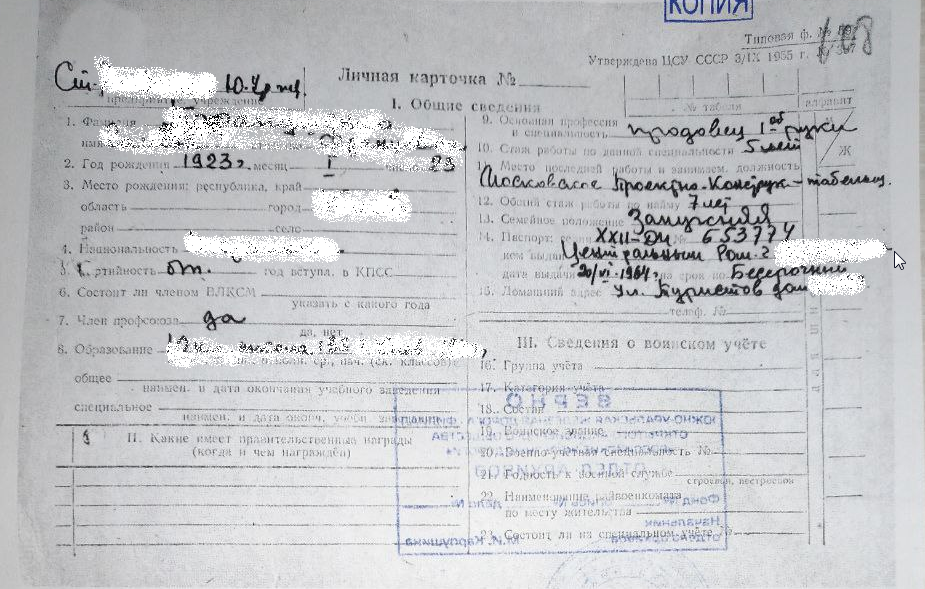 КОПИЯ
Типовая ф. №
Утверждена ЦСУ СССР 3/IX 1955 г.
Личная карточка №
Ст. Ю.-Ур жд
предприятие, учреждение
№ табеля
алфавит
I. Общие сведения
1. Фамилия
2. Год рождения 1923 г. месяц I 23
3. Место рождения: республика, край
область город
район село
4. Национальность
5. Партийность бп. год вступл. в КПСС
6. Состоит ли членом ВЛКСМ
указать с какого года
7. Член профсоюза да
да, нет
8. Образование
общее
наимен. и дата окончания учебного заведения
специальное
наимен. и дата оконч. учебн. заведения
II. Какие имеет правительственные награды
(когда и чем награждён)
9. Основная профессия
и специальность продавец 1ой руки
10. Стаж работы по данной специальности 5 лет
Ж
11. Место последней работы и занимаем. должность
Московское Проектно-Конструк- табельщ.
12. Общий стаж работы по найму 7 лет
13. Семейное положение Замужняя
14. Паспорт: серия XXII-ДИ № 653774
кем выдан Центральным
дата выдачи 20/VI-1964г. на срок Бессрочный
15. Домашний адрес ул. Туристов дом
телеф. №
III. Сведения о воинском учёте
16. Группа учёта
17. Категория учёта
18. Состав
19. Воинское звание
20. Военно-учётная специальность №
21. Годность к военной службе
строевой, нестроевой
22. Наименование райвоенкомата
по месту жительства
23. Состоит ли на специальном учёте №
ВЕРНО
ЮЖНО-УРАЛЬСКАЯ ЖЕЛЕЗНАЯ ДОРОГА - филиал
ОТКРЫТОГО АКЦИОНЕРНОГО ОБЩЕСТВА
ОТДЕЛ АРХИВОВ
Фонд № Опись № Дело №
Начальник
отдела архивов М.И. Карпушина